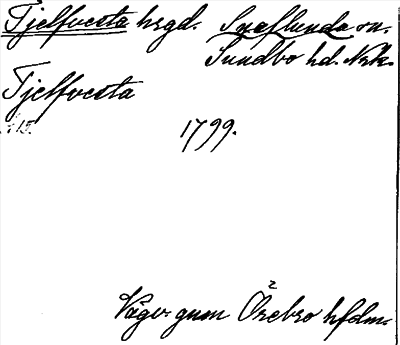 Tjelfvesta hrgd. Snaflunda sn.
Sundbo hd. Nrk.
Tjelfvesta
1799.
Vägv. gnm Örebro hfdm.